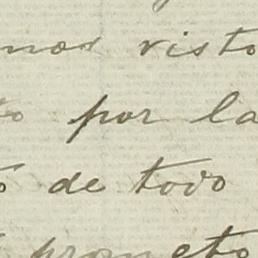 mos visto
por la
de todo
prometo